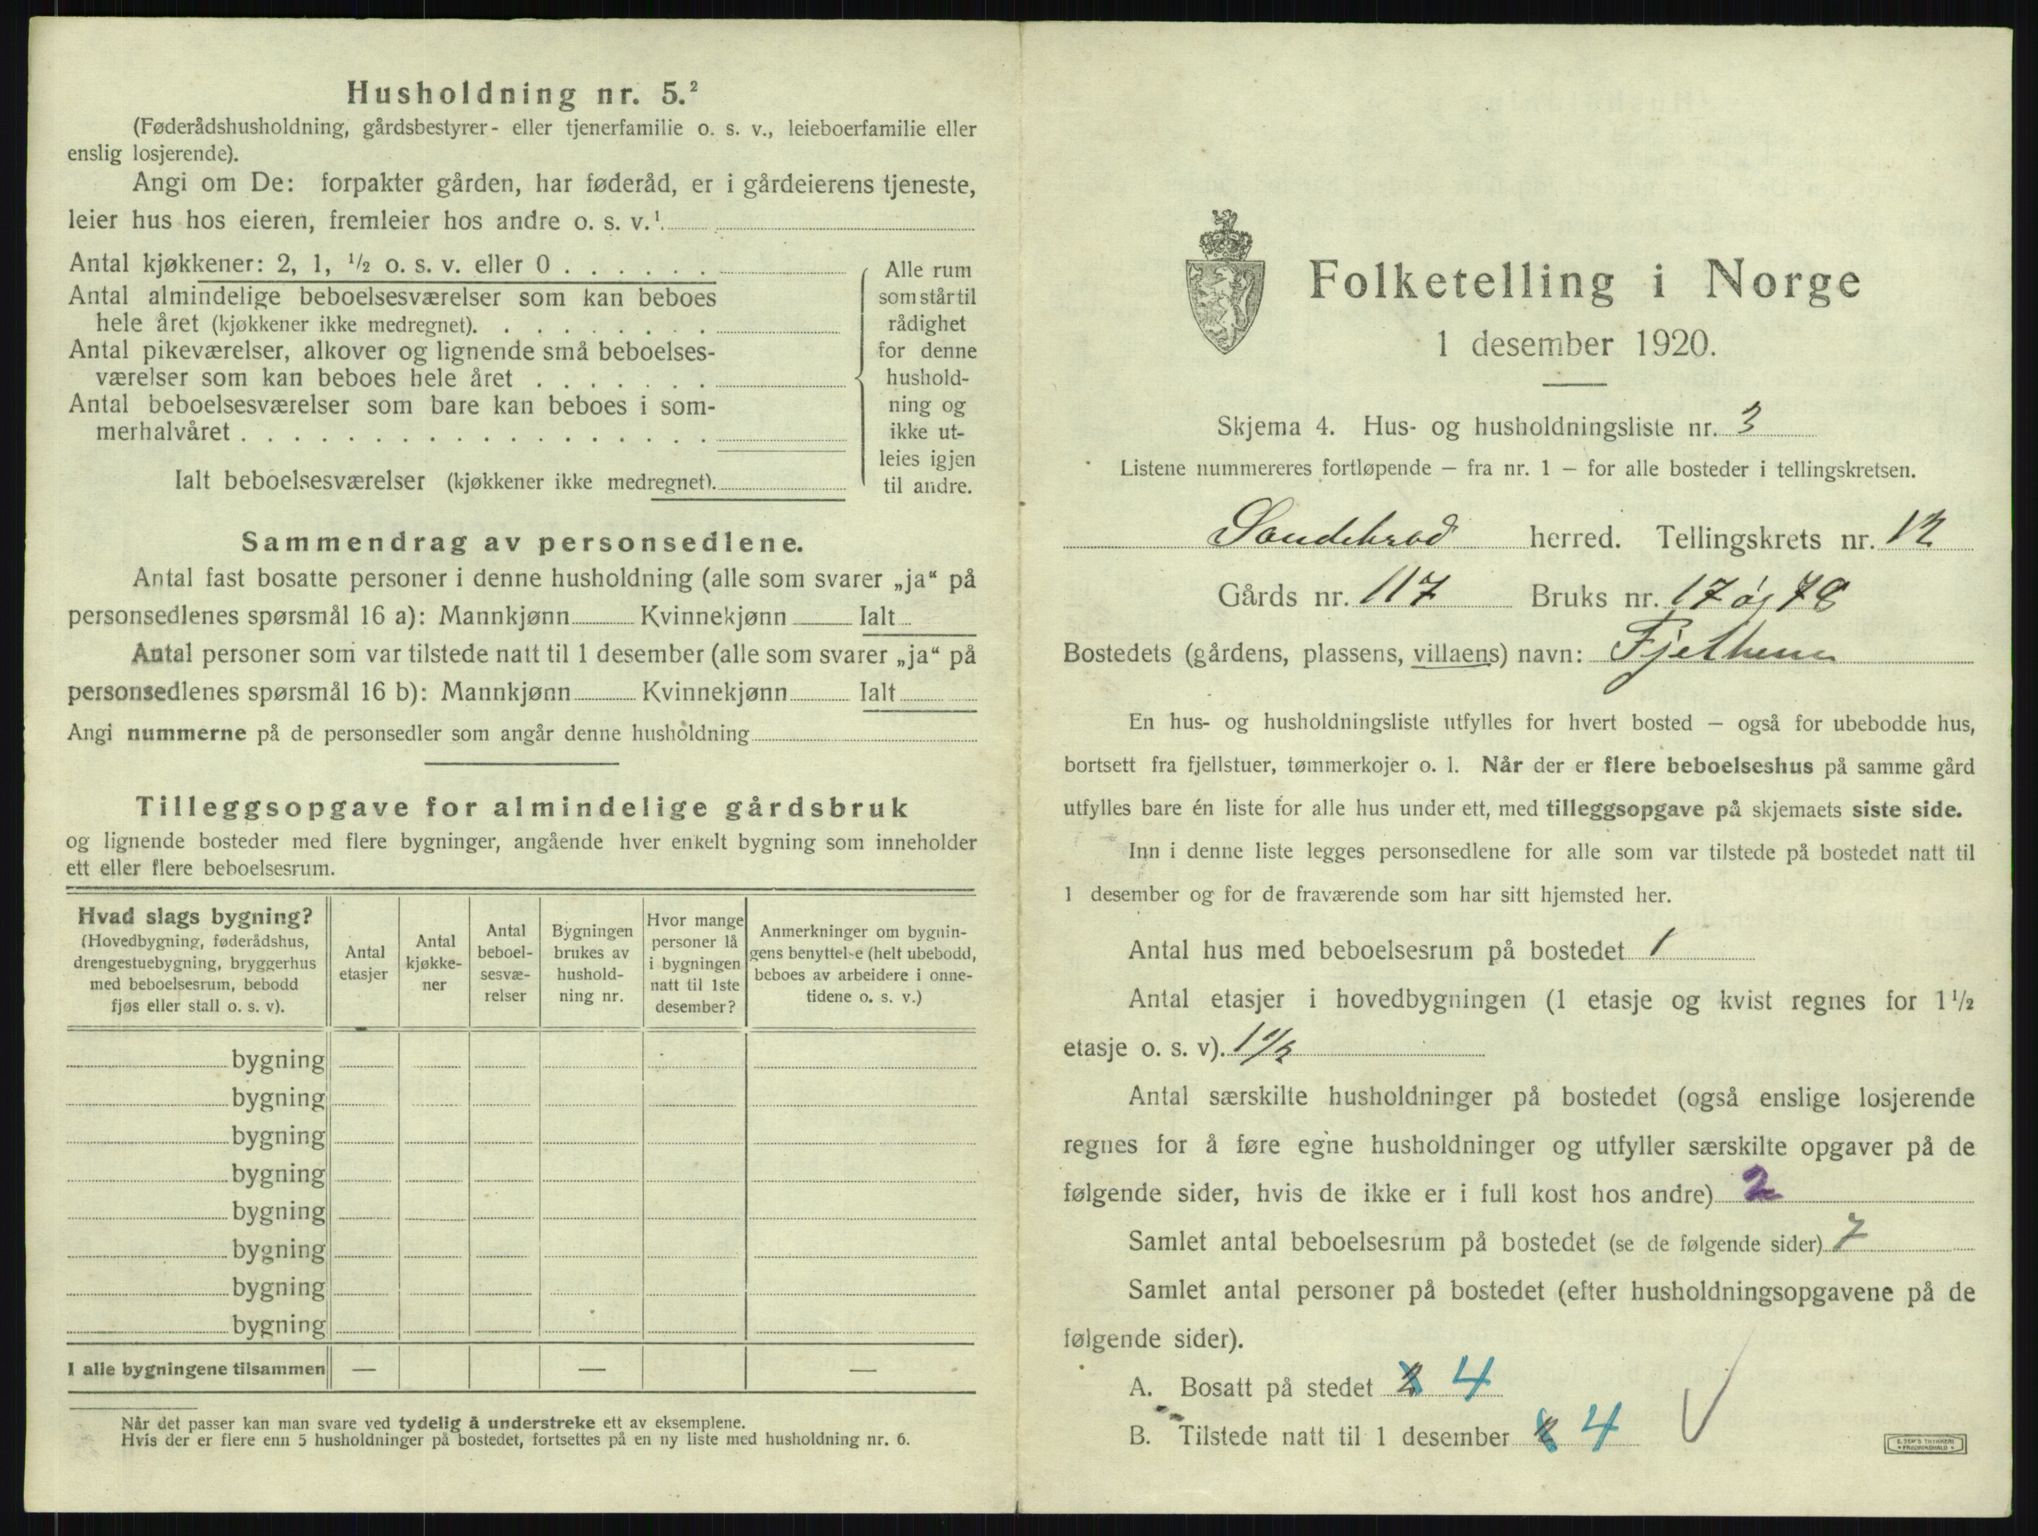 Husholdning nr. 5.²
(Føderådshusholdning, gårdsbestyrer- eller tjenerfamilie o. s. v., leieboerfamilie eller
enslig losjerende).
Angi om De: forpakter gården, har føderåd, er i gårdeierens tjeneste,
leier hus hos eieren, fremleier hos andre o. s. v.¹
Antal kjøkkener: 2, 1, ½ o. s. v. eller 0 . . . . . .
Antal almindelige beboelsesværelser som kan beboes
hele året (kjøkkener ikke medregnet). . . . . . . . .
Antal pikeværelser, alkover og lignende små beboelses-
værelser som kan beboes hele året . . . . . . .
Antal beboelsesværelser som bare kan beboes i som-
merhalvåret . . . . . . . . . . . . . . . . . .
Ialt beboelsesværelser (kjøkkener ikke medregnet).
Alle rum
som står til
rådighet
for denne
hushold-
ning og
ikke ut-
leies igjen
til andre.
Sammendrag av personsedlene.
Antal fast bosatte personer i denne husholdning (alle som svarer „ja“ på
personsedlenes spørsmål 16 a): Mannkjønn Kvinnekjønn Ialt
Antal personer som var tilstede natt til 1 desember (alle som svarer „ja“ på
personsedlenes spørsmål 16 b): Mannkjønn Kvinnekjønn Ialt
Angi nummerne på de personsedler som angår denne husholdning
Tilleggsopgave for almindelige gårdsbruk
og lignende bosteder med flere bygninger, angående hver enkelt bygning som inneholder
ett eller flere beboelsesrum.
Hvad slags bygning?
(Hovedbygning, føderådshus,
drengestuebygning, bryggerhus
med beboelsesrum, bebodd
fjøs eller stall o. s. v).
Antal
etasjer
Antal
kjøkke-
ner
Antal
beboel-
sesvæ-
relser
Bygningen
brukes av
hushold-
ning nr.
Hvor mange
personer lå
i bygningen
natt til 1ste
desember?
Anmerkninger om bygnin-
gens benyttelse (helt ubebodd,
beboes av arbeidere i onne-
tidene o. s. v.)
bygning
bygning
bygning
bygning
bygning
bygning
bygning
bygning
I alle bygningene tilsammen — — —
Når det passer kan man svare ved tydelig å understreke ett av eksemplene.
Hvis der er flere enn 5 husholdninger på bostedet, fortsettes på en ny liste med husholdning nr. 6.
Folketelling i Norge
1 desember 1920.
Skjema 4. Hus- og husholdningsliste nr. 3
Listene nummereres fortløpende – fra nr. 1 – for alle bosteder i tellingskretsen.
Sandeherad herred. Tellingskrets nr. 12
Gårds nr. 117 Bruks nr. 17 og 78
Bostedets (gårdens, plassens, villaens) navn:
En hus- og husholdningsliste utfylles for hvert bosted – også for ubebodde hus,
bortsett fra fjellstuer, tømmerkojer o. l. Når der er flere beboelseshus på samme gård
utfylles bare én liste for alle hus under ett, med tilleggsopgave på skjemaets siste side.
Inn i denne liste legges personsedlene for alle som var tilstede på bostedet natt til
1 desember og for de fraværende som har sitt hjemsted her.
Antal hus med beboelsesrum på bostedet 1
Antal etasjer i hovedbygningen (1 etasje og kvist regnes for 1½
etasje o. s. v). 1½
Antal særskilte husholdninger på bostedet (også enslige losjerende
regnes for å føre egne husholdninger og utfyller særskilte opgaver på de
følgende sider, hvis de ikke er i full kost hos andre) 2
Samlet antal beboelsesrum på bostedet (se de følgende sider) 7
Samlet antal personer på bostedet (efter husholdningsopgavene på de
følgende sider).
A. Bosatt på stedet 4
B. Tilstede natt til 1 desember 4